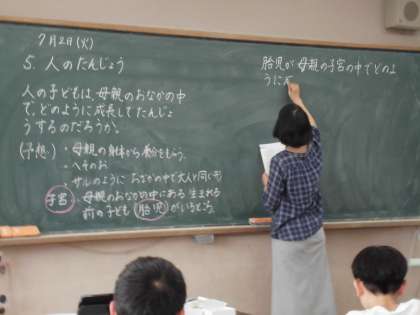 7月2日(火)
5. 人のたんじょう
人の子どもは、母親のおなかの中
で、どのように成長してたんじょ
うするのだろうか。
(予想)・母親の身体から養分をもらう。
・へそのお
・サルのように おなかの中で大人と同じ形
子宮・母親のおなかの中にある 生まれる
前の子ども(胎児)がいるところ。
胎児が母親の子宮の中でどのよ
うに